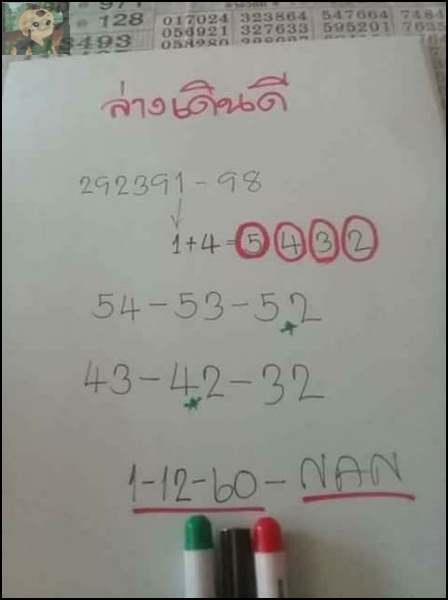 128
3493
017024 323864 547664
056921 327633 595201
ล่างเดินดี
292391-98
1+4=5 4 3 2
54-53-52
43-42-32
1-12-60-NAN